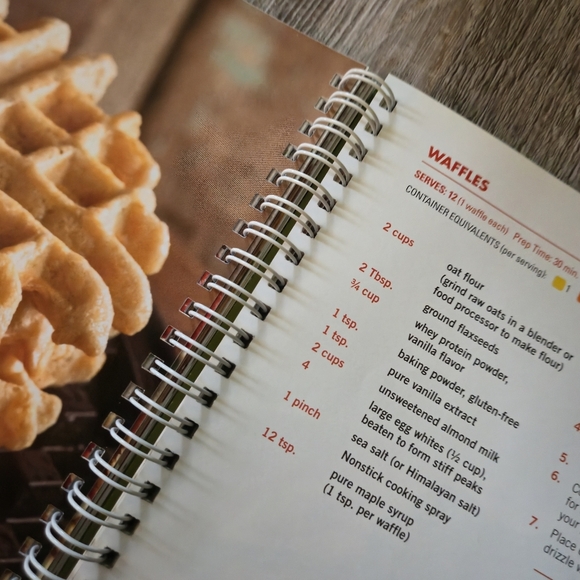 WAFFLES
SERVES: 12 (1 waffle each) Prep Time: 30 min.
CONTAINER EQUIVALENTS (per serving): 1
2 cups oat flour
(grind raw oats in a blender or
food processor to make flour)
2 Tbsp. ground flaxseeds
¾ cup whey protein powder,
vanilla flavor
1 tsp. baking powder, gluten-free
1 tsp. pure vanilla extract
2 cups unsweetened almond milk
4 large egg whites (½ cup),
beaten to form stiff peaks
1 pinch sea salt (or Himalayan salt)
Nonstick cooking spray
12 tsp. pure maple syrup
(1 tsp. per waffle)
4
5.
6.
for
your
7. Place
drizzle